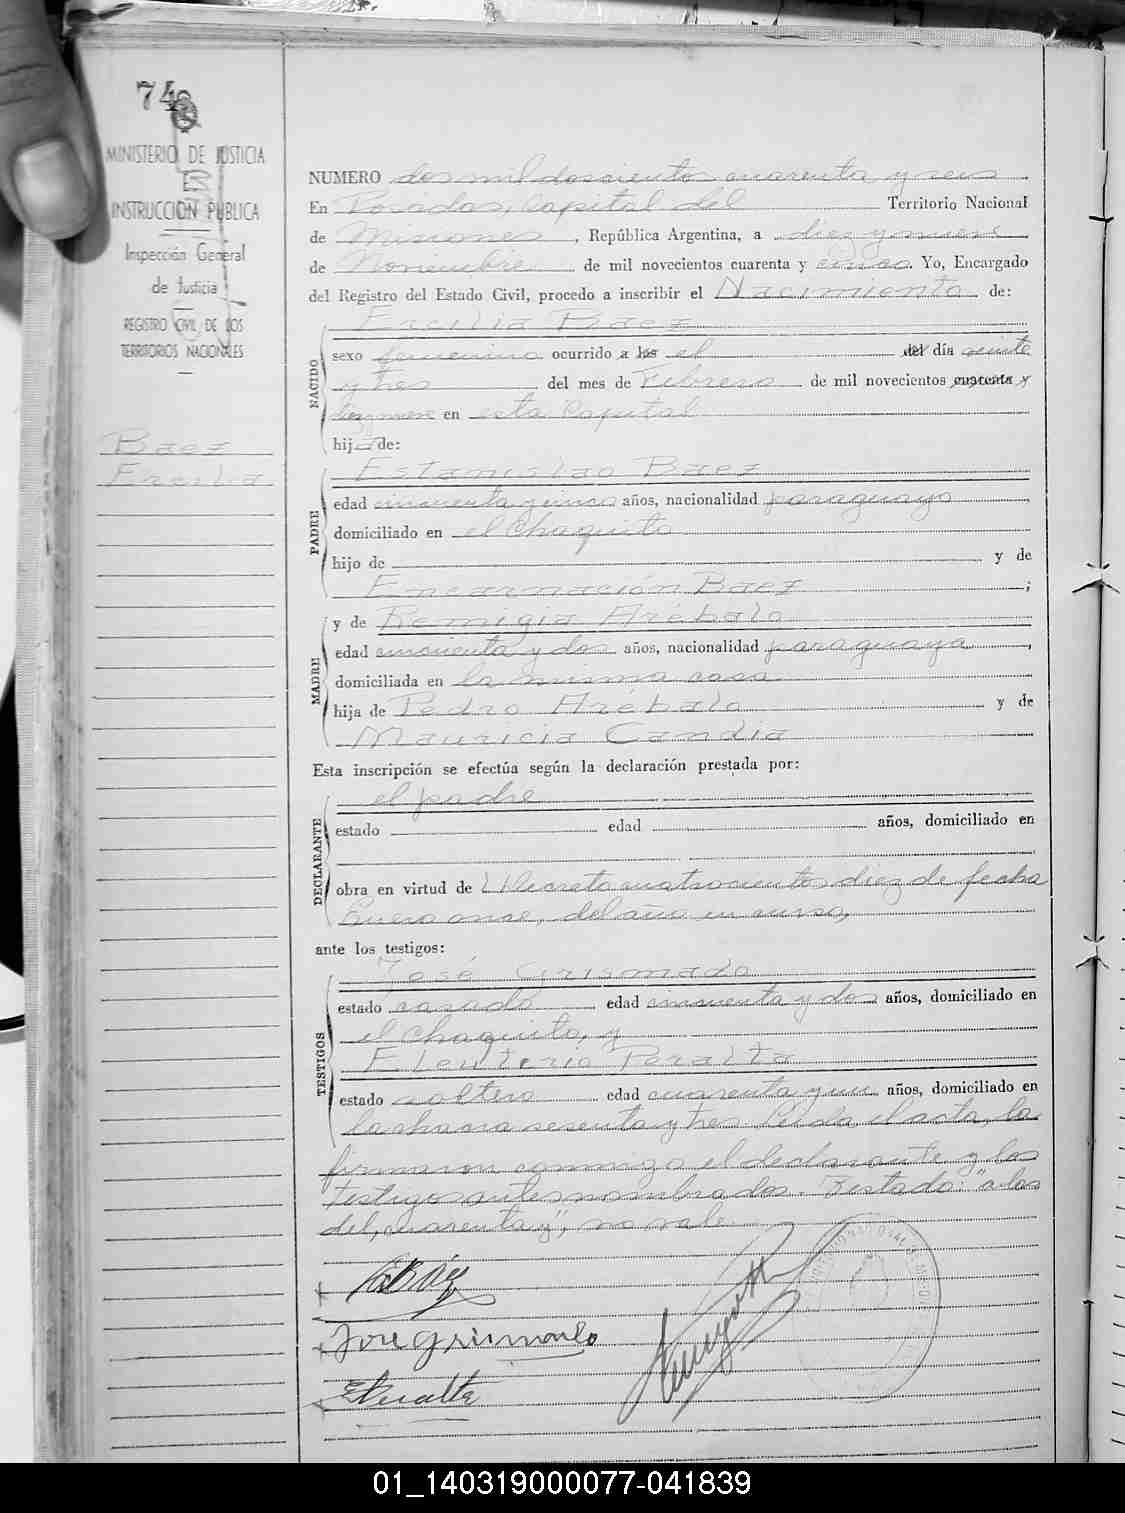 74
MINISTERIO DE JUSTICIA
E
INSTRUCCION PUBLICA
Inspección General
de Justicia
REGISTRO CIVIL DE LOS
TERRITORIOS NACIONALES
Baez
Ercilia
NUMERO dos mil doscientos cuarenta y seis
En Posadas, Capital del Territorio Nacional
de Misiones, República Argentina, a diez y nueve
de Noviembre de mil novecientos cuarenta y cinco. Yo, Encargado
del Registro del Estado Civil, procedo a inscribir el Nacimiento de:
Ercilia Baez
NACIDO
sexo femenino ocurrido a las el del día veinte
y tres del mes de Febrero de mil novecientos cuarenta y
diez y nueve en esta Capital
hija de:
Estanislao Baez
PADRE
edad cincuenta y cinco años, nacionalidad paraguayo
domiciliado en el Chaquito
hijo de y de
Encarnación Baez;
y de Remigia Arébalo
MADRE
edad cincuenta y dos años, nacionalidad paraguaya,
domiciliada en la misma casa
hija de Pedro Arébalo y de
Mauricia Candia
Esta inscripción se efectúa según la declaración prestada por:
el padre
DECLARANTE
estado edad años, domiciliado en
obra en virtud de l Decreto cuatrocientos diez de fecha
Enero once, del año en curso,
ante los testigos:
José Grismado
TESTIGOS
estado casado edad cincuenta y dos años, domiciliado en
el Chaquito, y
Eleuterio Peralta
estado soltero edad cuarenta y un años, domiciliado en
la chacra sesenta y tres. Leída el acta, la
firmaron conmigo el declarante y los
testigos antes nombrados. Testado: "a las
del, cuarenta y", no vale.
EBáez
José Grismado
EPeralta
01_140319000077-041839